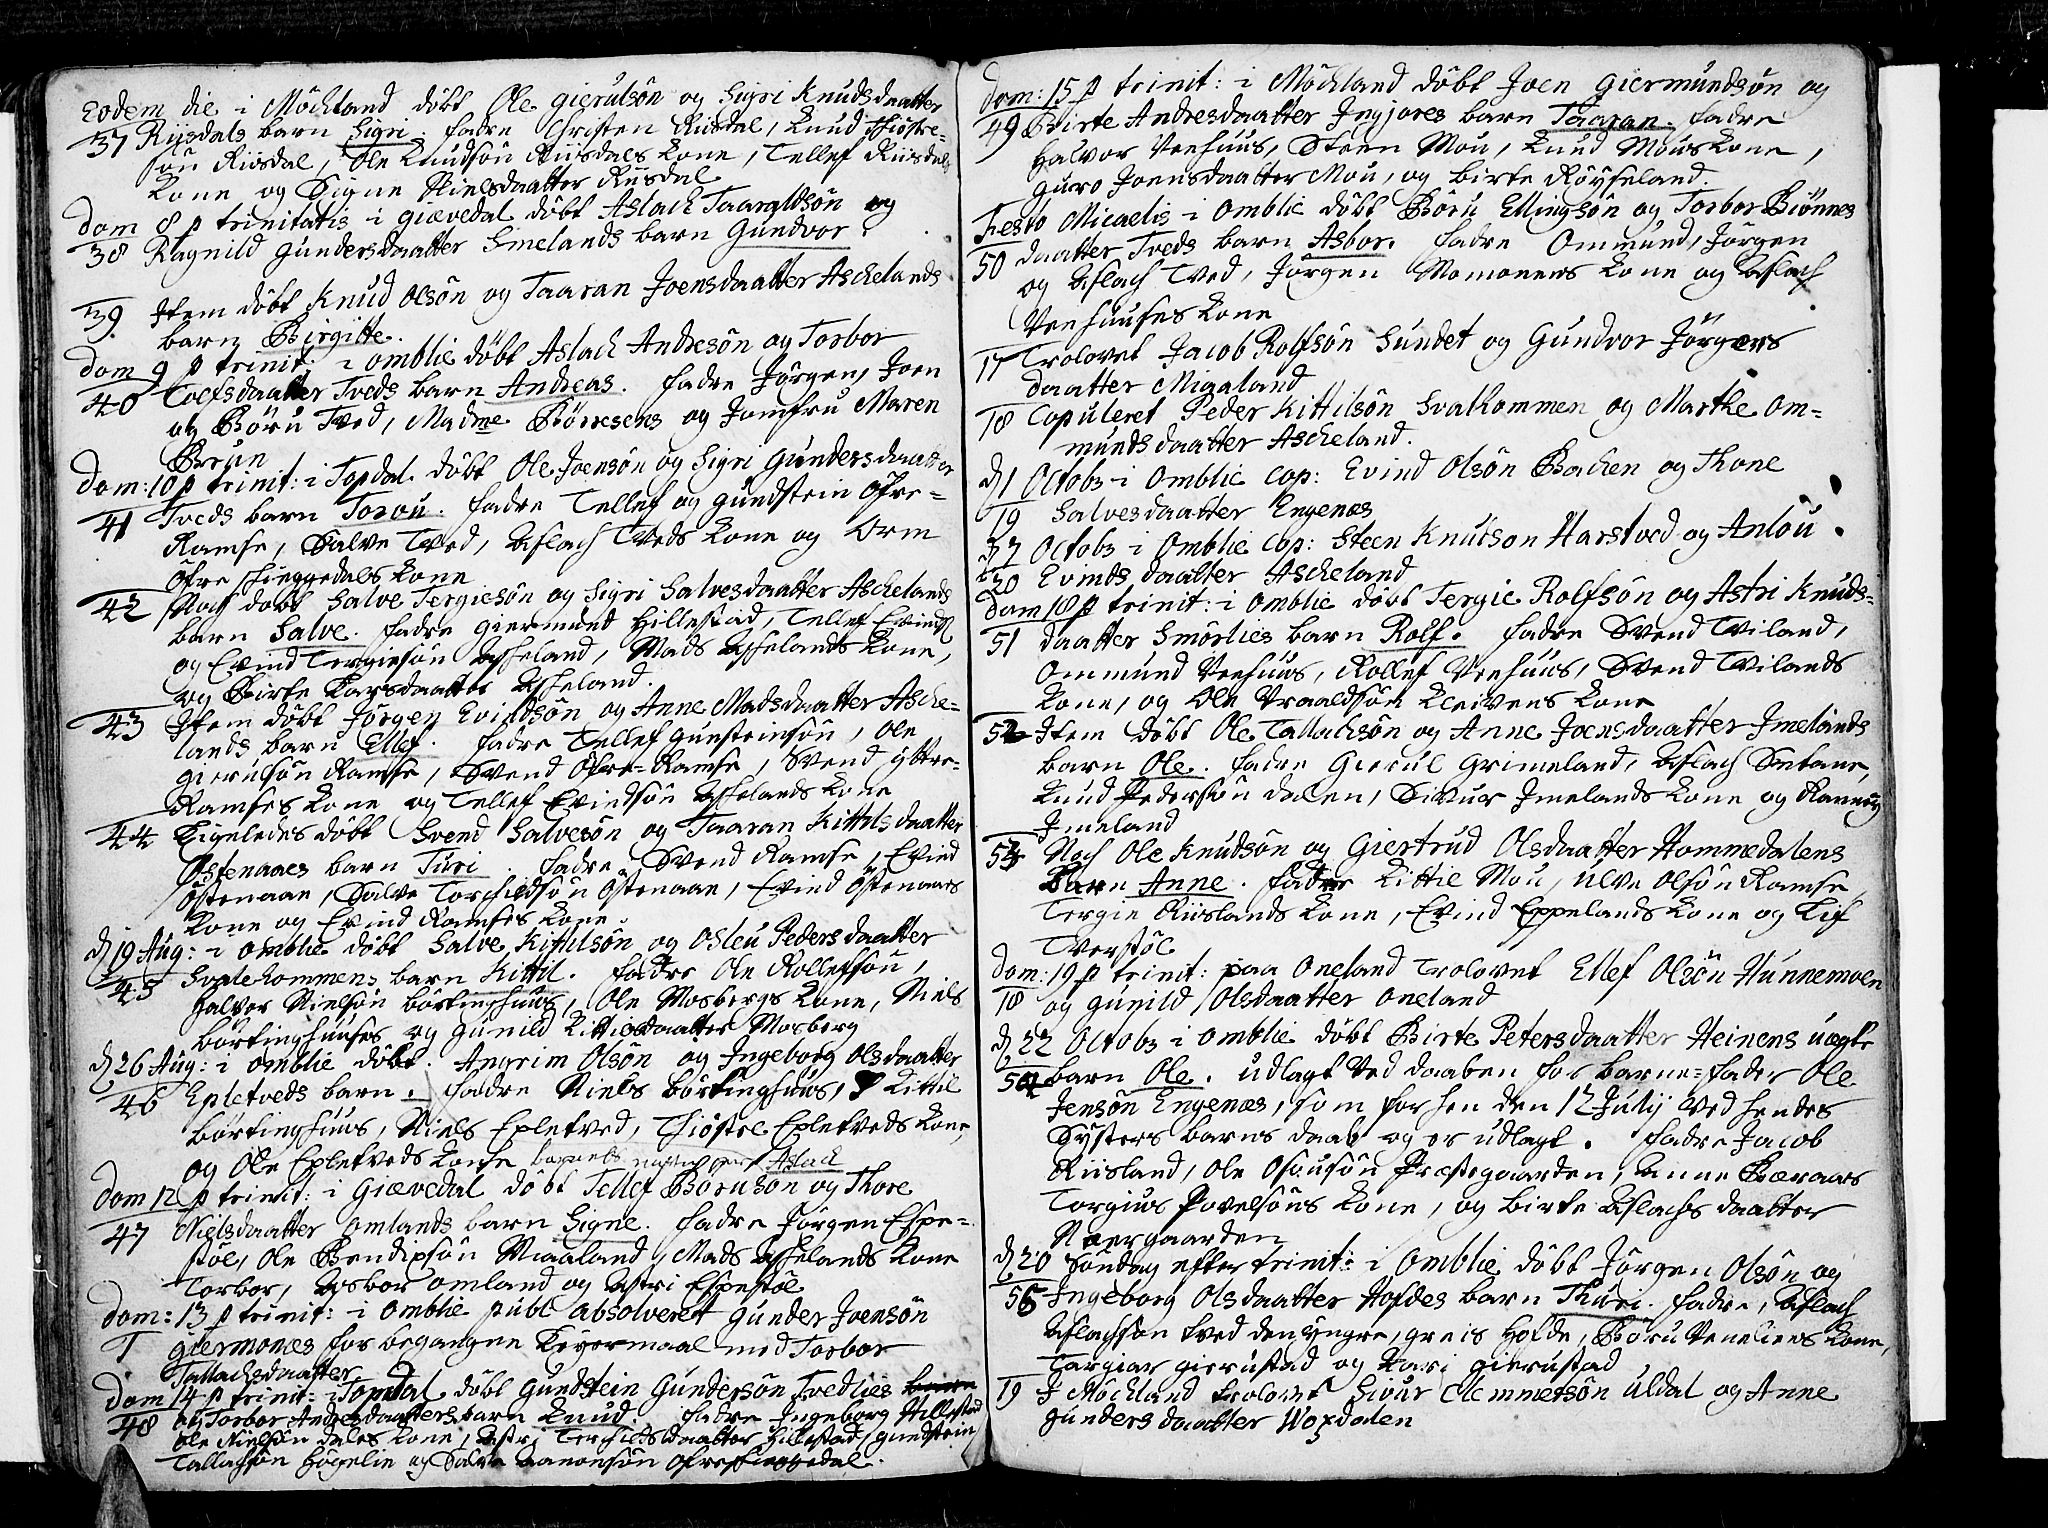 Eodem die i Möckland döbt Ole Gierulsön og Sigri Knudsdaatter
37 Riisdals barn Sigri. fadre Christen Riisdal, Knud Thiöstre-
sön Riisdal, Ole Knudsön Riisdals Kone, Tellef Riisdals
Kone og Signe Nielsdaatter Riisdal
Dom 8 p trinitatis i Giævedal döbt Aslach Taaraldsön og
38 Ragnild Gundersdaatter Simelands barn Gundvor.
39 Item döbt Knud Olsön og Taaran Joensdaatter Aschelands
barn Birgitte.
Dom 9 p trinit: i Omblie döbt Aslach Andresön og Torbor
40 Toefsdaatter Tveds barn Andreas. fadre Jörgen, Joen
og Böru Tved, Madme Börresens og Jomfru Maren
Brun
Dom: 10 p trinit: i Topdal döbt Ole Joensön og Sigri Gundersdaatter
41 Tveds barn Torou. fadre Tellef og Gundstein Öfre-
Ramse, Salve Tved, Aslach Tveds Kone og Orm
Öfre Schieggedals Kone
42 Noch döbt Salve Tergiesön og Sigri Salvesdaatter Aschelands
barn Salve. fadre Giermund Hillestad, Tellef Evinds
og Evind Tergiesön Askeland, Mads Askelands Kone,
og Birte Larsdaatter Askeland.
43 Item döbt Jörgen Evindsön og Anne Madsdaatter Asche-
lands barn Ellef. fadre Tellef Gunsteinsön, Ole
Gierulsön Ramse, Svend Öfre-Ramse, Svend Yttre-
Ramses Kone og Tellef Evindsön Askelands Kone
44 Ligeledes döbt Svend Salvesön og Taaran Kittilsdaatter
Östenaaes barn Turi. fadre Svend Ramse, Evind
Östenaae, Salve Torchildsön Östenaae, Evind Östenaaes
Kone og Evind Ramses Kone.
d 19 Aug: i Omblie döbt Salve Kittilsön og Osleu Pedersdaatter
45 Svalekommens barn Kittil. fadre Ole Rollefsön,
Halvor Nielsön Börtinghuus, Ole Mosbergs Kone, Niels
Börtinghuuses og Gunild Kittilsdaatter Mosberg
d 26 Aug: i Omblie döbt Angrim Olsön og Ingeborg Olsdaatter
46 Epletveds barn. fadre Niels Börtinghuus, Kittil
Börtinghuus, Niels Epletved, Thiöstel Epletveds Kone,
og Ole Epletveds Kone barnets navn var Aslack
Dom 12 p trinit: i Giævedal döbt Tellef Börusön og Thore
47 Nielsdaatter Omlands barn Signe. fadre Jörgen Espe-
stöl, Ole Bendixsön Miaaland, Mads Askelands Kone
Torbor, Asbor Omland og Astri Espestöl
Dom: 13 p trinit: i Omblie publ absolveret Gunder Joensön
1 Giermonæs for begangne Leyermaal med Torbor
Tallachsdaatter
Dom 14 p trinit: i Topdal döbt Gundstein Gundersön Tvedlies
48 og Torbor Andresdaatters barn Knud. fadre Ingeborg Hillestad
Ole Nielsön Dales Kone, Astri Terchildsdaatter Hillestad, Gundstein
Tallachsön Högelie og Salve Aanonsön Öfreskieggedal.
Dom: 15 p trinit: i Möckland döbt Joen Giermundsön og
49 Birte Andresdaatter Ingjores barn Taaran. fadre
Halvor Veehuus, Steen Mou, Knud Mous Kone,
Guro Joensdaatter Mou, og Birte Röyseland.
Festo Micaelis i Omblie döbt Böru Ellingsön og Torbor Biönnes
50 daatter Tveds barn Asbor. fadre Ommund, Jörgen
og Aslach Tved, Jörgen Momonens Kone og Aslach
Veehuuses Kone
17 Trolovet Jacob Rolfsön Sundet og Gundvor Jörgens
daatter Migaland
18 Copuleret Peder Kittilsön Svalkommen og Marthe Om-
mundsdaatter Ascheland.
d 1 Octobr i Omblie cop: Evind Olsön Bachen og Thone
19 Salvesdaatter Engenæs
Octobr i Omblie cop: Steen Knudson Harstved og Anlou
20 Evindsdaatter Ascheland
Dom 18 p trinit: i Omblie döbt Tergie Rolfsön og Astri Knuds-
51 daatter Smörlies barn Rolf. fadre Svend Tviland,
Ommund Veehuus, Rollef Veehuus, Svend Tvilands
Kone, og Ole Vraaldsön Kleivens Kone
52 Item döbt Ole Tallachsön og Anne Joensdaatter Imelands
barn Ole. fadre Gierul Grimeland, Aslach
Knud Pedersön Dalen, Sivur Imelands Kone og
Imeland
53 Noch Ole Knudsön og Giertrud Olsdaatter Hommedalens
Barn Anne. fadre Kittil Mou, Ulve Olsön Ramse,
Tergie Riislands Kone, Evind Eppelands Kone og Lif
Tverstöl
Dom: 19 p trinit: paa Oneland Trolovet Ellef Olsön Hunnemoen
18 og Gunild Olsdaatter Oneland
d 22 Octobr i Omblie döbt Birte Petersdaatter Heinens uægte
54 barn Ole. udlagt ved daaben for barne-fader Ole
Jensön Engenæs, som forhen den 12 Julij ved hendes
Systers barns daab og er udlagt. fadre Jacob
Riisland, Ole Præstegaarden, Anne
Torgius Povelsöns Kone, og Birte Aslachsdaatter
Noergaarden
d 20 Söndag efter trinit: i Omblie döbt Jörgen Olsön og
55 Ingeborg Olsdaatter Hofdes barn Thuri. fadre, Aslach
Aslachsön Tved den yngre, Greis Hofde, Böru Veneliens Kone,
Targier Gierustad og Kari Gierustad
19 I Möckland trolovet Sivur Clemmetsön Uldal og Anne
Gundersdaatter Woxdalen